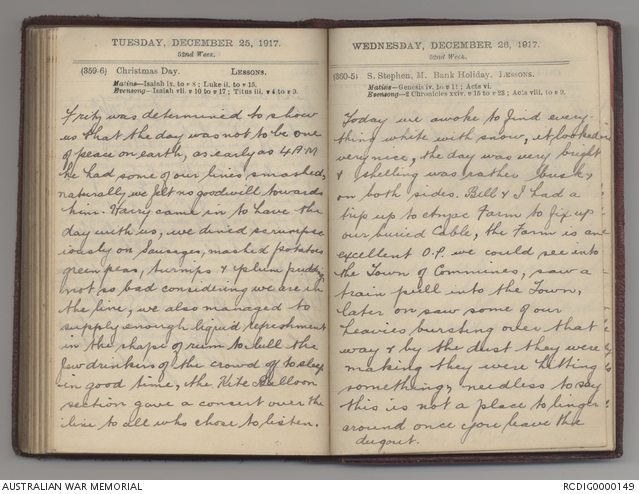 TUESDAY, DECEMBER 25, 1917.
52nd Week.
(359-6) Christmas Day. LESSONS.
Matins—Isaiah ix. to v 8; Luke ii. to v 15.
Evensong—Isaiah vii. v 10 to v 17; Titus iii. v 4 to v 9.
Fritz was determined to show
us that the day was not to be one
of peace on earth, as early as 4 A.M
he had some of our lines smashed,
naturally we felt no goodwill towards
him. Harry came in to have the
day with us, we dined scrumpsc
iously on Sausages, mashed potatoes
green peas, turnips & plum pudding
not so bad considering we are in
the line, we also managed to
supply enough liquid refreshment
in the shape of rum to lull the
few drinkers of the crowd off to sleep
in good time, the Kite Balloon
section gave a concert over the
line to all who chose to listen.
WEDNESDAY, DECEMBER 26, 1917.
52nd Week.
(360-5) S. Stephen, M. Bank Holiday. LESSONS.
Matins—Genesis iv. to v 11; Acts vi.
Evensong—2 Chronicles xxiv. v 15 to v 23; Acts viii. to v 9.
Today we awoke to find every
thing white with snow, it looked
very nice, the day was very bright
& shelling was rather busy
on both sides. Bill & I had a
trip up to Anzac Farm to fix up
our buried Cable, the Farm is an
excellent O.P. we could see into
the Town of Commines, saw a
train pull into the Town,
later on saw some of our
heavies bursting over that
way & by the dust they were
making they were hitting
something, needless to say
this is not a place to linger
around once you leave the
dugout.
AUSTRALIAN WAR MEMORIAL
RCDIG0000149